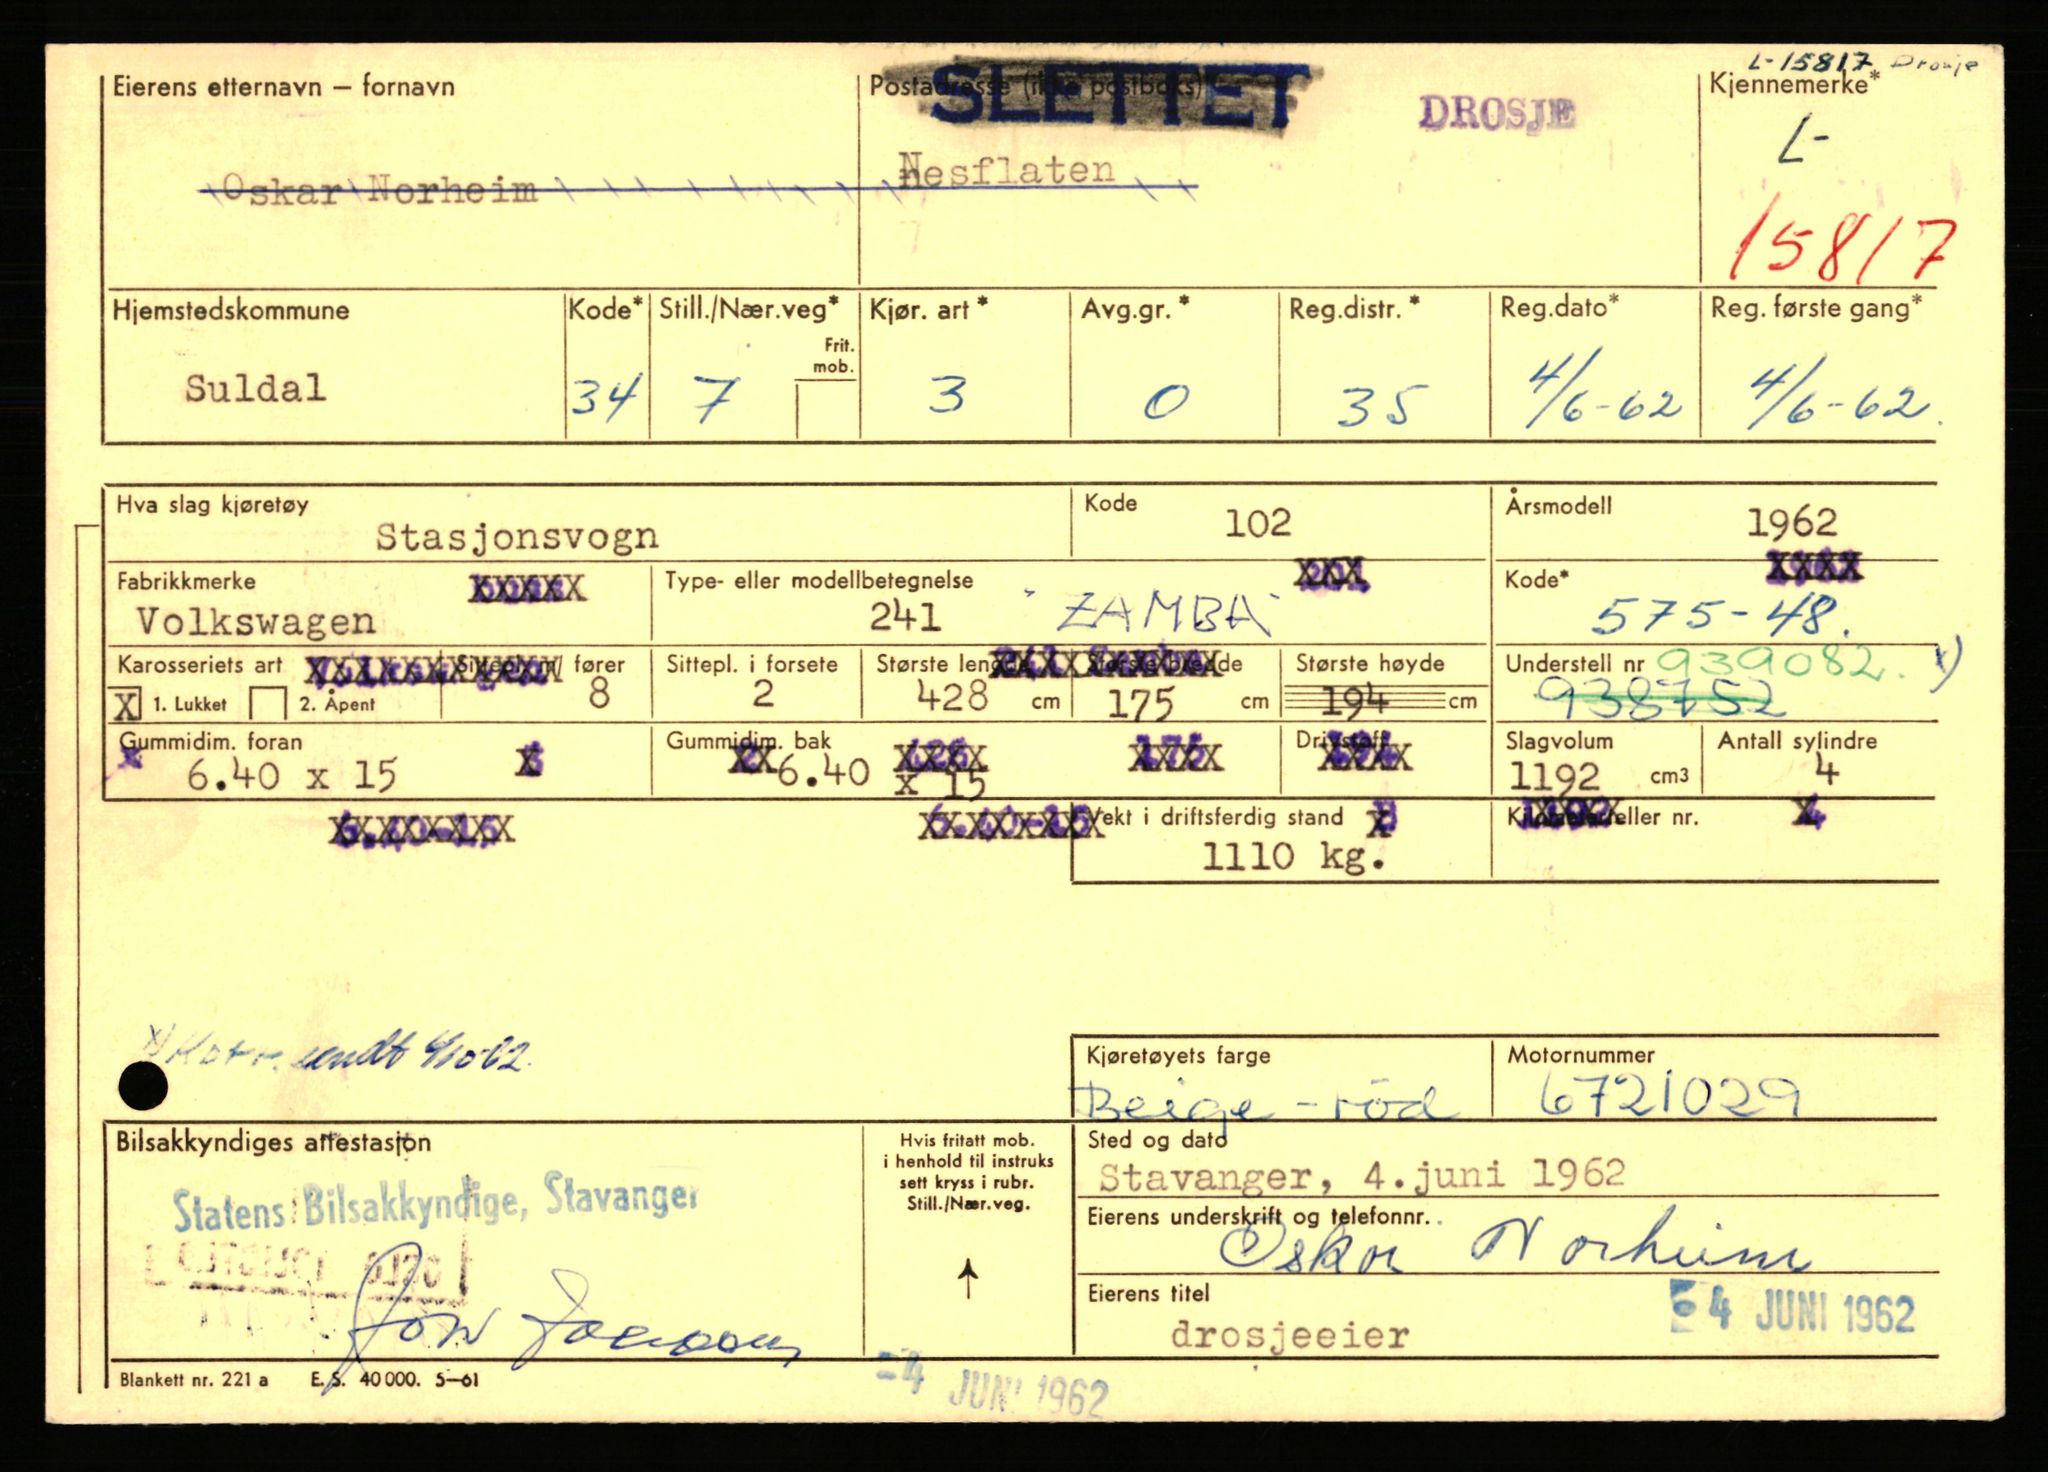 L-15817 Drosje
Eierens etternavn – fornavn
Postadresse (ikke postboks)
SLETTET
DROSJE
Kjennemerke*
L-
15817
Oskar Norheim
Nesflaten
Hjemstedskommune Kode* Still./Nær.veg* Kjør. art* Avg.gr.* Reg.distr.* Reg.dato* Reg. første gang*
Frit. mob.
Suldal 34 7 3 0 35 4/6-62 4/6-62.
Hva slag kjøretøy Kode Årsmodell
Stasjonsvogn 102 1962
Fabrikkmerke XXXXX Type- eller modellbetegnelse XXX Kode* XXXX
Volkswagen 241 "ZAMBA" 575-48.
Karosseriets art fører Sittepl. i forsete Største lengde Største bredde Største høyde Understell nr 939082. x)
X 1. Lukket 2. Åpent 8 2 428 cm 175 cm 194 cm 938752
Gummidim. foran Gummidim. bak Drivstoff Slagvolum Antall sylindre
6.40 x 15 6.40 x 15 1192 cm3 4
Vekt i driftsferdig stand Kilometerteller nr.
1110 kg.
Kjøretøyets farge Motornummer
Beige-rød 6721029
Bilsakkyndiges attestasjon
Hvis fritatt mob.
i henhold til instruks
sett kryss i rubr.
Still./Nær.veg.
Sted og dato
Stavanger, 4.juni 1962
Statens Bilsakkyndige, Stavanger
Eierens underskrift og telefonnr.
Oskar Norheim
Eierens titel
drosjeeier
-4 JUNI 1962
Blankett nr. 221 a E. S. 40 000. 5–61
-4 JUNI 1962